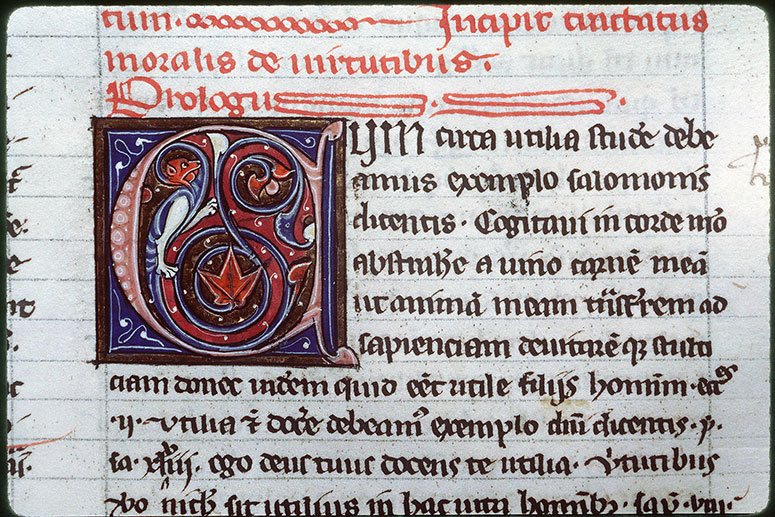 tum. Incipit tractatus
moralis de uirtutibus.
Prologus
CUM circa utilia studere debe
amus exemplo salomonis
dicentis. Cogitaui in corde meo
abstrahere a uino carnem meam
ut animam meam transferrem ad
sapienciam deuitaremque stulti
ciam donec uiderem quid eset utile filijs hominum. eccs
.ii. Utilia et docere debeamus exemplo domini dicentis. p.
sa. xlviii. ego deus tuus docens te utilia. Virtutibus
uero nichil sit utilius in hac uita hominibus. sap. viii.